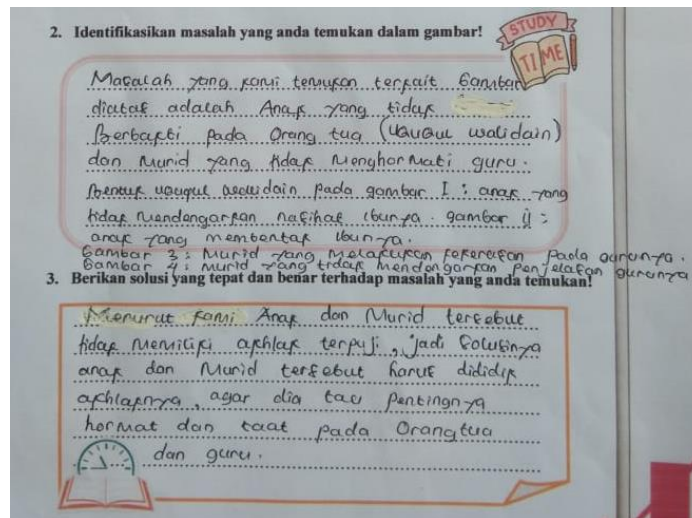 2. Identifikasikan masalah yang anda temukan dalam gambar!
STUDY
TIME
Masalah yang kami temukan terkait Gambar
diatas adalah Anak yang tidak
Berbakti pada Orang tua (uququl walidain)
dan Murid yang tidak Menghormati guru.
Bentuk uququl walidain pada gambar I : anak yang
tidak Mendengarkan nasihat ibunya. gambar ij :
anak yang membentak ibunya.
Gambar 3 : Murid yang Melakukan kekerasan pada gurunya.
Gambar 4 : Murid yang tidak Mendengarkan penjelasan gurunya
3. Berikan solusi yang tepat dan benar terhadap masalah yang anda temukan!
Menurut kami Anak dan Murid tersebut
tidak Memiliki akhlak terpuji, jadi Solusinya
anak dan Murid tersebut harus dididik
akhlaknya, agar dia tau Pentingnya
hormat dan taat pada Orangtua
dan guru.